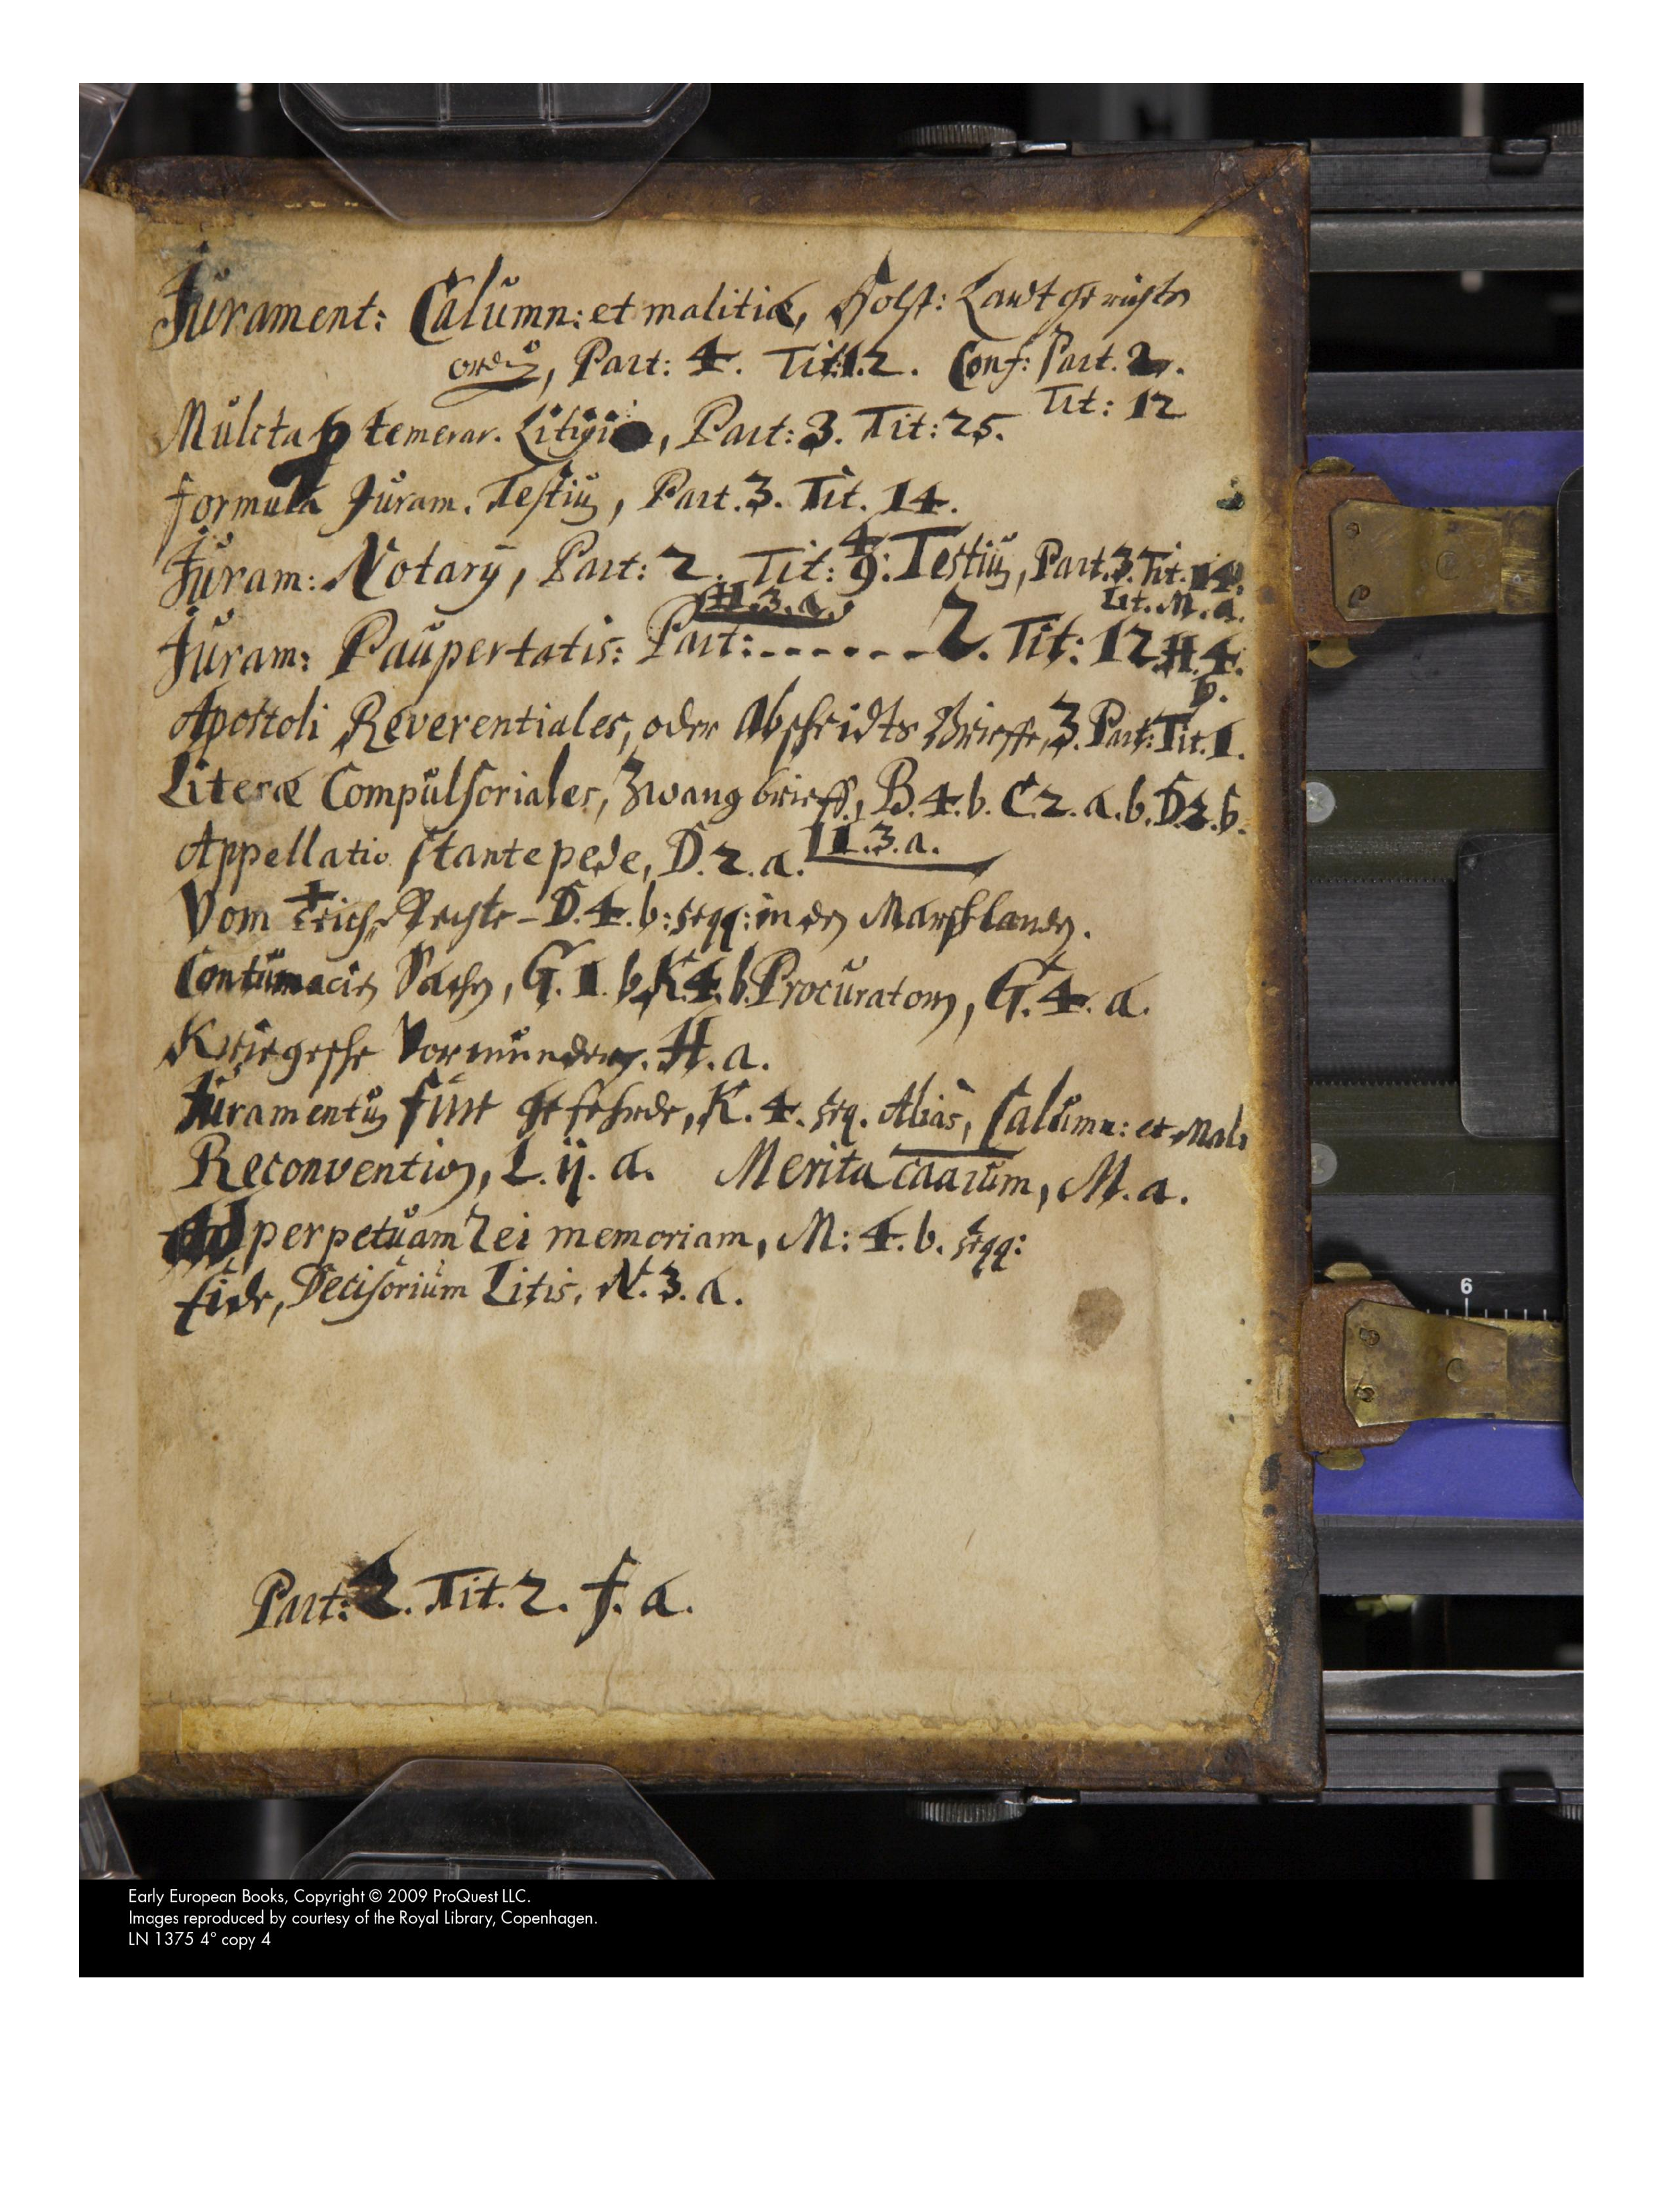 Jurament: Calumn: et malitiæ, Holst: Landtgerichts
ordnũg, Part: 4. Tit: 12. Conf: Part. 2.
Tit: 12
Mulcta p temerar. Litigio, Part: 3. Tit: 25.
formula Juram. Testiũ, Part. 3. Tit. 14.
Juram: Notarij, Part: 2. Tit: 9: Testiũ, Part. 3. Tit. 14.
H. 3. a. Lit. M. a.
Juram: Paupertatis: Part: - - - - - - 2. Tit: 12 H. 4.
b.
Apostoli Reverentiales, oder Abscheidts Brieffe, 3. Part: Tit. 1.
Literæ Compulsoriales, Zwangbrieff, B. 4. b. C. 2. a. b. D. 2. b.
Appellatio stante pede, D. 2. a. H. 3. a.
Vom Teich Rechte - D. 4. b: seqq: in den Marschlanden.
Contumacien Sachen, G. 1. b. K. 4. b. Procuratorn, G. 4. a.
Kriegesche Vormundern. H. a.
Juramentũ fuer gefehrde, K. 4. seq. Alias, Calumn: et Mali
Reconvention, L. ij. a. Merita caarum, M. a.
Ad perpetuam rei memoriam, M: 4. b. seqq:
Eide, Decisorium Litis, N. 3. a.
Part: 2. Tit. 2. f. a.
6
Early European Books, Copyright © 2009 ProQuest LLC.
Images reproduced by courtesy of the Royal Library, Copenhagen.
LN 1375 4° copy 4